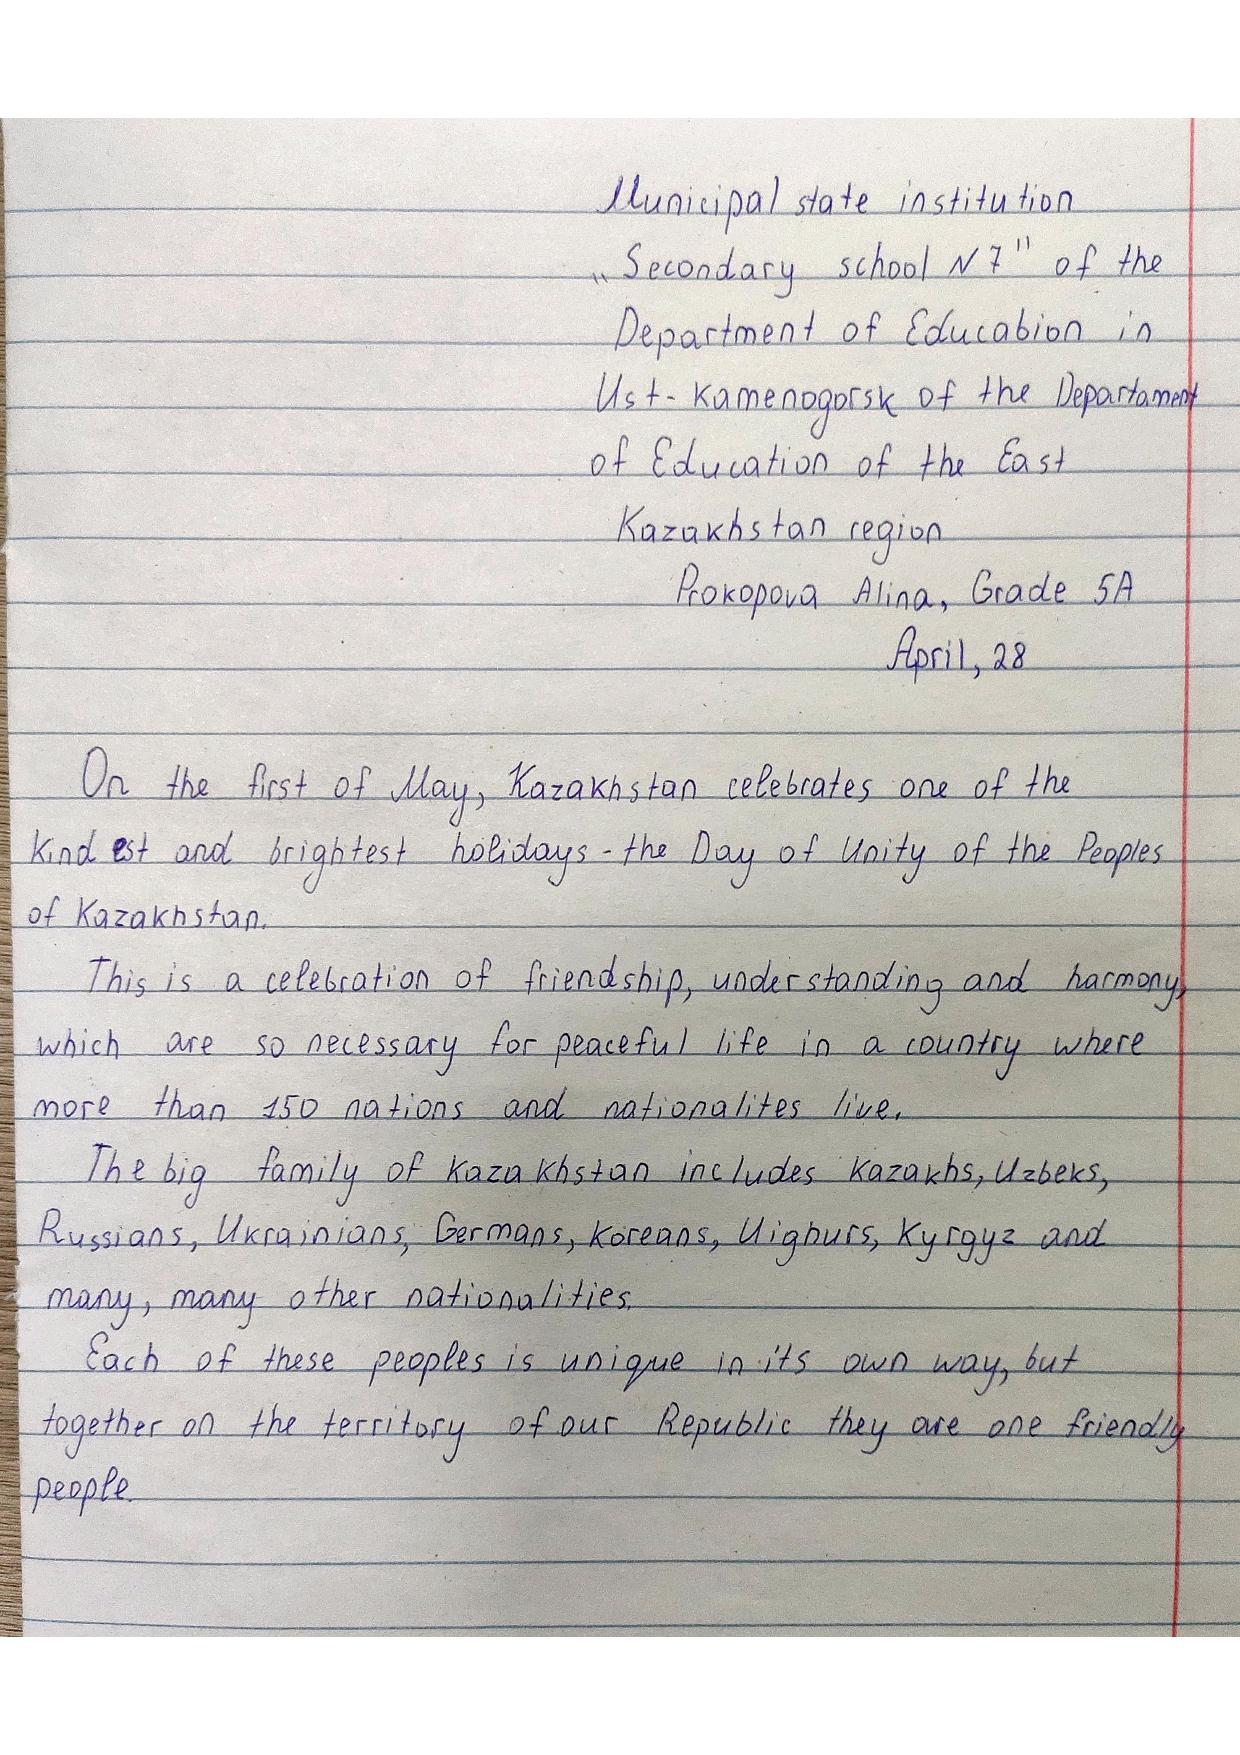 Municipal state institution
„Secondary school N7" of the
Department of Educabion in
Ust-Kamenogorsk of the Departament
of Education of the East
Kazakhstan region
Prokopova Alina, Grade 5A
April, 28
On the first of May, Kazakhstan celebrates one of the
kindest and brightest holidays - the Day of Unity of the Peoples
of Kazakhstan.
This is a celebration of friendship, understanding and harmony,
which are so necessary for peaceful life in a country where
more than 150 nations and nationalites live.
The big family of Kazakhstan includes Kazakhs, Uzbeks,
Russians, Ukrainians, Germans, Koreans, Uighurs, Kyrgyz and
many, many other nationalities.
Each of these peoples is unique in its own way, but
together on the territory of our Republic they are one friendly
people.